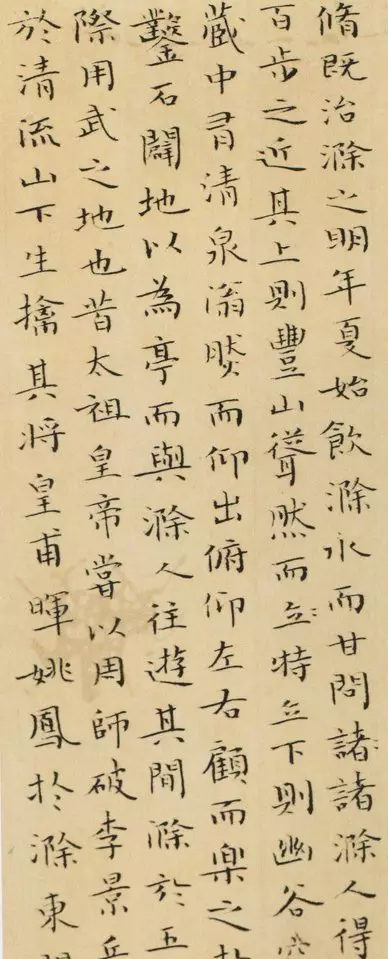 脩既治滁之明年夏始飲滁水而甘問諸諸滁人得
百步之近其上則豐山聳然而立特立下則幽谷
藏中有清泉滃然而仰出俯仰左右顧而楽之
鑿石闢地以為亭而與滁人往遊其間滁於五
際用武之地也昔太祖皇帝嘗以周師破李景兵
於清流山下生擒其将皇甫暉姚鳳於滁東